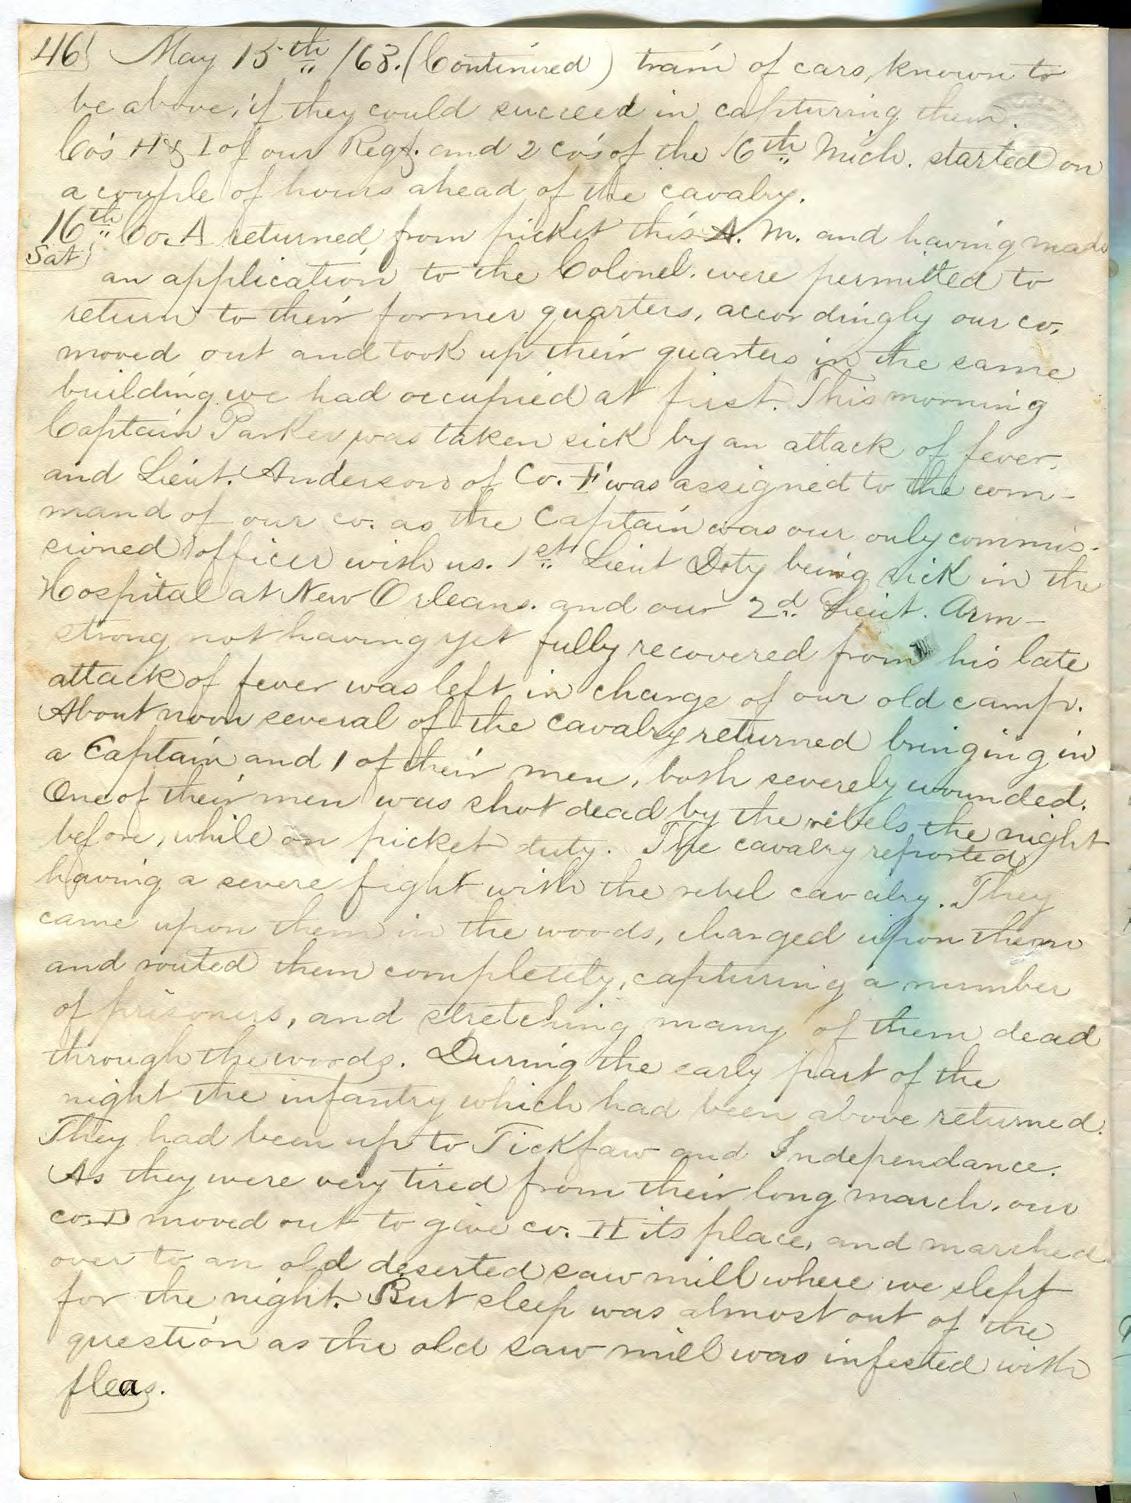 46} May 15th /63. (Continued) train of cars, known to
be above, if they could succeed in capturing them.
Co's H & I of our Regt. and 2 co's of the 6th Mich. started on
a couple of hours ahead of the cavalry.
16th Co. A returned from picket this A. M. and having made
Sat} an application to the Colonel. were permitted to
return to their former quarters, accordingly our co.
moved out and took up their quarters in the same
building we had occupied at first. This morning
Captain Parker was taken sick by an attack of fever.
and Lieut. Anderson of Co. F was assigned to the com-
mand of our co. as the Captain was our only commis-
sioned officer with us. 1st Lieut Doty being sick in the
Hospital at New Orleans. and our 2d. Lieut. Arm-
strong not having yet fully recovered from his late
attack of fever was left in charge of our old camp.
About noon several of the cavalry returned bringing in
a Captain and 1 of their men, both severely wounded.
One of their men was shot dead by the rebels the night
before, while on picket duty. The cavalry reported
having a severe fight with the rebel cavalry. They
came upon them in the woods, charged upon them
and routed them completely, capturing a number
of prisoners, and stretching many of them dead
through the woods. During the early part of the
night the infantry which had been above returned.
They had been up to Tickfaw and Independance.
As they were very tired from their long march, our
co. D moved out to give co. H its place, and marched
over to an old deserted saw mill where we slept
for the night. But sleep was almost out of the
question as the old saw mill was infested with
fleas.